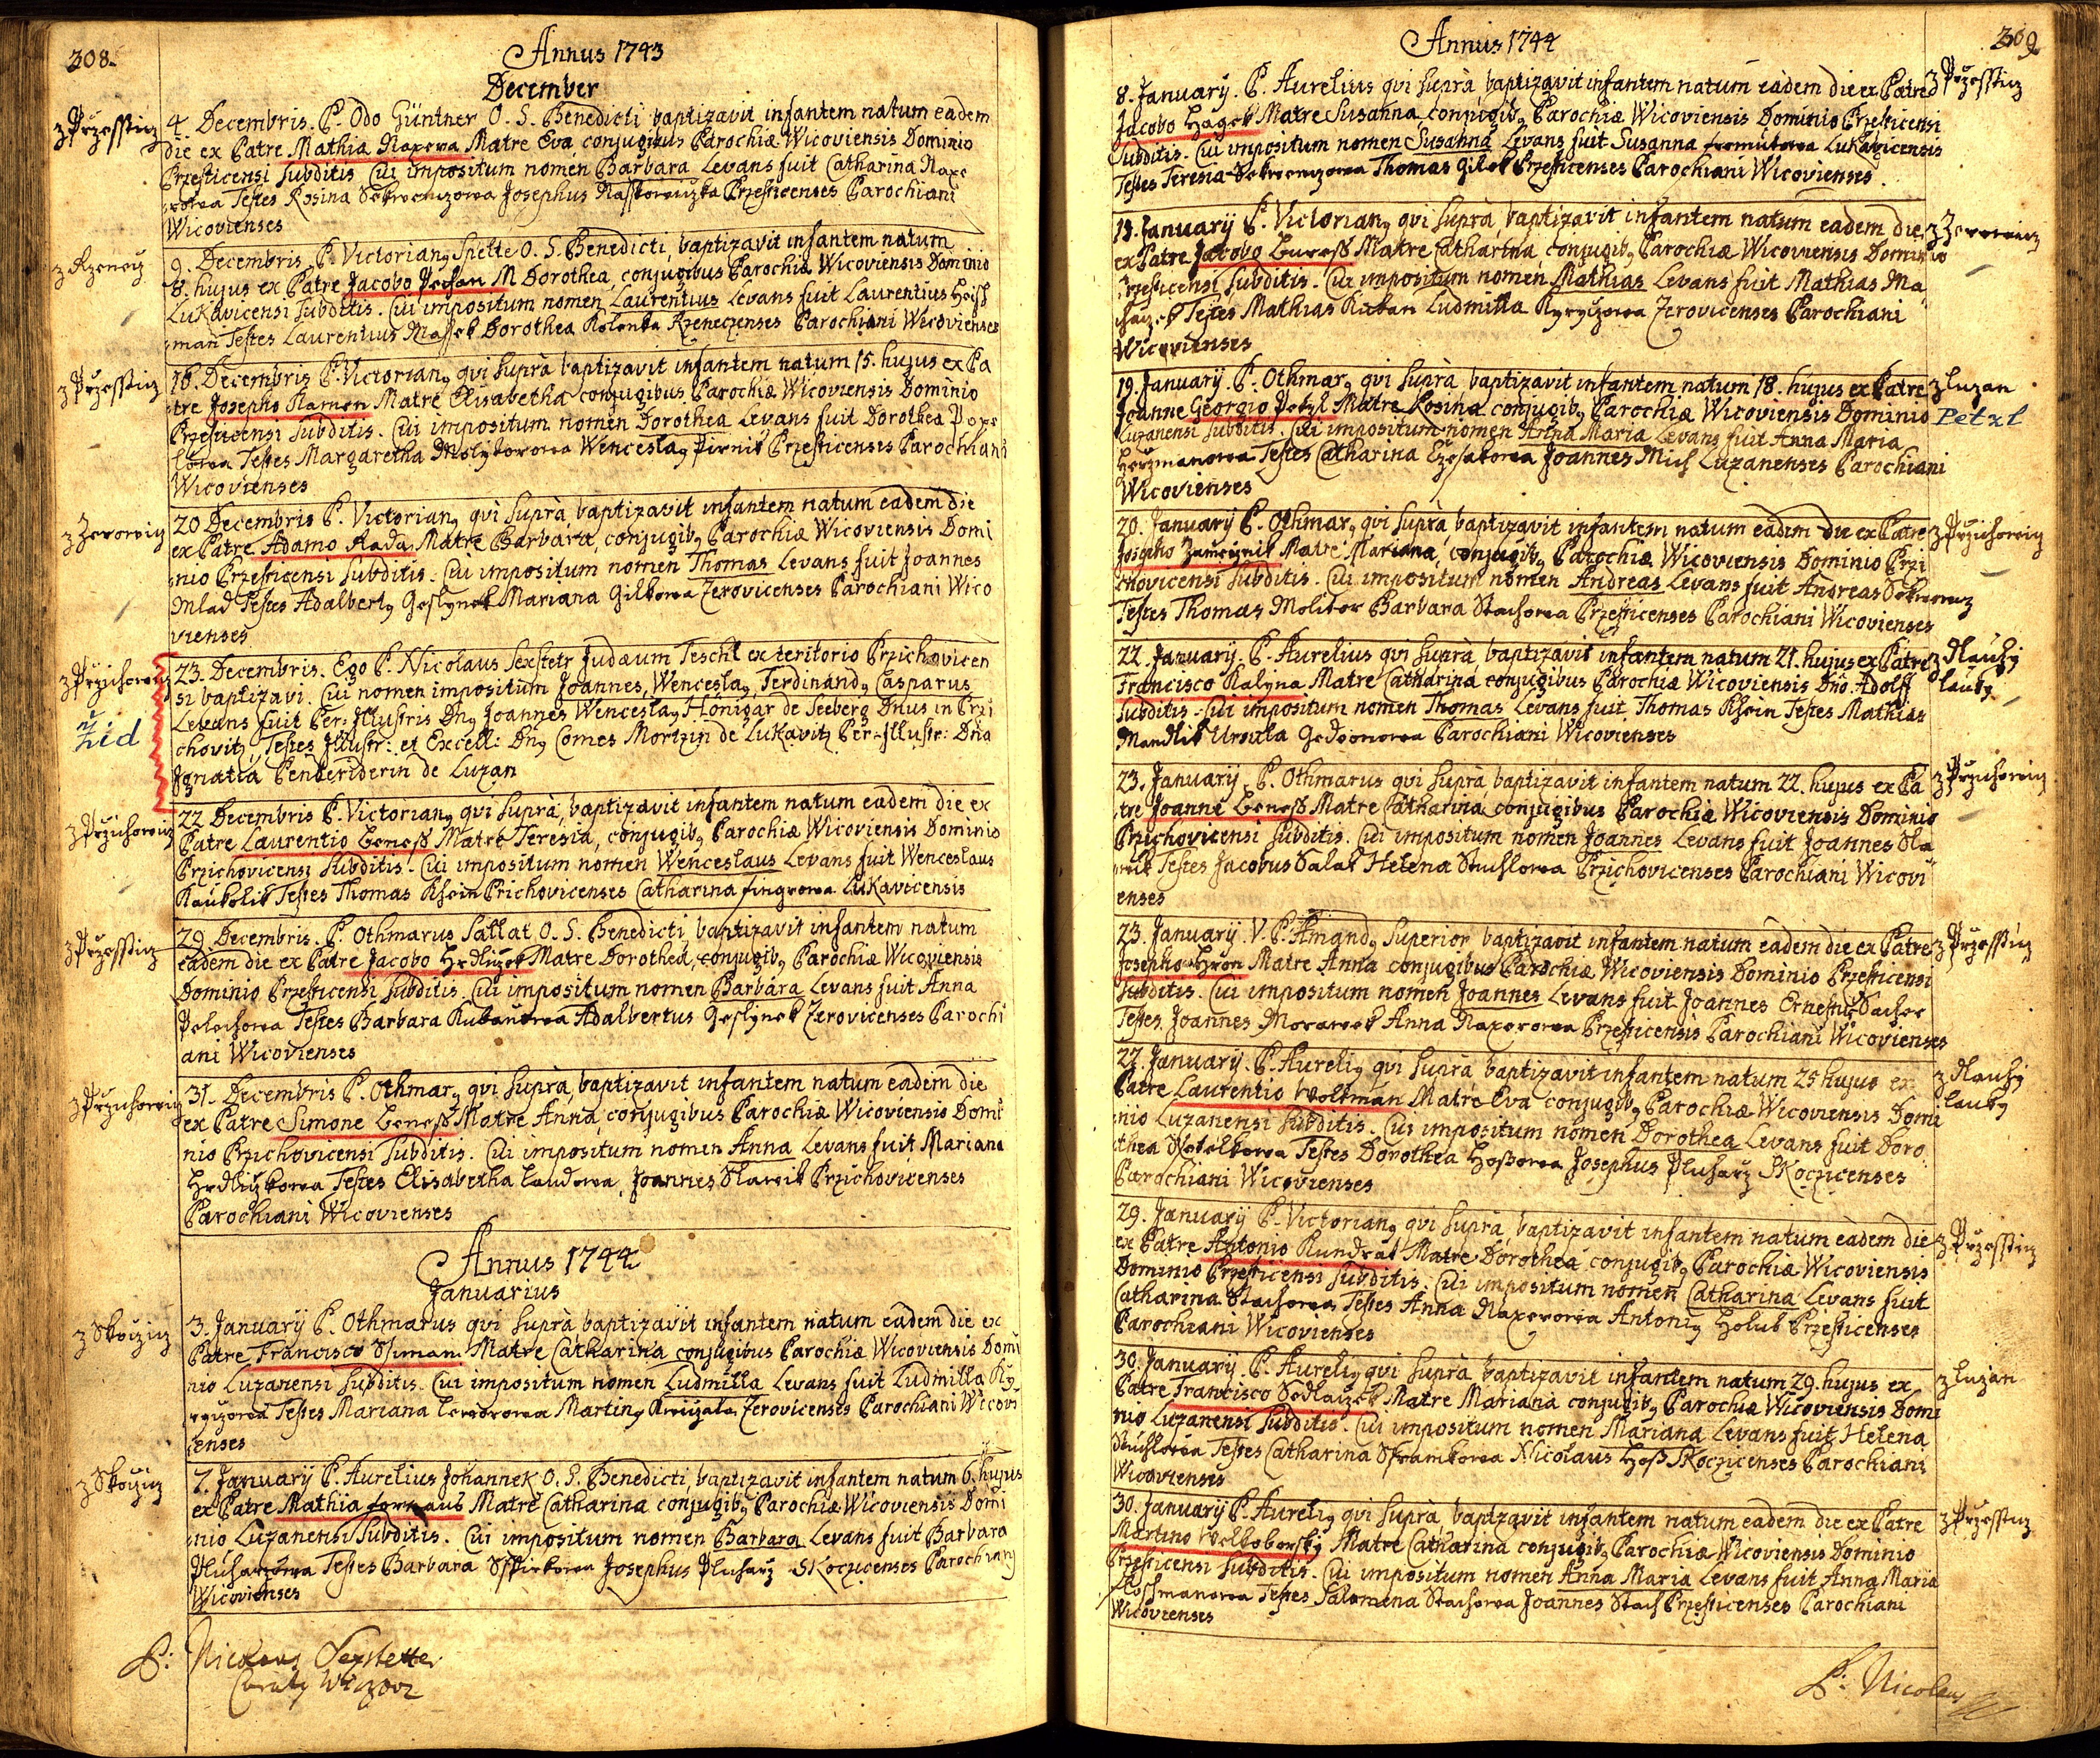 308.
Annus 1743
December
z Przesstiz
4. Decembris. P. Odo Güntner O. S. Benedicti baptizavit infantem natum eadem
die ex Patre Mathia Naxera Matre Eva conjugibus Parochiæ Wicoviensis Dominio
Przesticensi subditis Cui impositum nomen Barbara Levans fuit Catharina Naxe
rowa Testes Rosina Josephus Przesticenses Parochiani
Wicovienses
z Rzenecz
9. Decembris P. Victorianq Spielte O. S. Benedicti, baptizavit infantem natum
8. hujus ex Patre Jacobo Pechan M Dorothea, conjugibus Parochiæ Wicoviensis Dominio
Lukavicensi subditis. Cui impositum nomen Laurentius Levans fuit Laurentius Heiss
man Testes Laurentius Massek Dorothea Rzeneczenses Parochiani Wicovienses
z Przesstiz
16. Decembris P. Victorianq qvi suprà baptizavit infantem natum 15. hujus ex Pa
tre Josepho Kamen Matre Elisabetha conjugibus Parochiæ Wicoviensis Dominio
Przesticensi subditis. Cui impositum nomen Dorothea Levans fuit Dorothea Pope
lowa Testes Margaretha Molytorowa Wenceslaq Pernik Przesticensis Parochiani
Wicovienses
z Zerowiz
20 Decembris P. Victorianq qvi suprà, baptizavit infantem natum eadem die
ex Patre Adamo Rada, Matre Barbara, conjugibq Parochiæ Wicoviensis Domi
nio Przesticensi subditis. Cui impositum nomen Thomas Levans fuit Joannes
Mlad Testes Adalbertq Geslynek Mariana Gilkowa Zerovicenses Parochiani Wico
vienses
z Przichowiz
Žid
23. Decembris. Ego P. Nicolaus Sexstetr Judæum Teschl ex teritorio Przichovicen
si baptizavi. Cui nomen impositum Joannes, Wenceslaq, Ferdinandq Casparus
Levans fuit Per: Jllustris Dnq Joannes Wenceslaq Honigar de Seeberg Dnus in Przi
chovitz, Testes Jllustr: et Excell: Dnq Comes Mortzin de Lukavitz Per-Jllustr: Dna
Jgnatia Penteriderin de Luzan
z Przichowiz
22 Decembris P. Victorianq qvi suprà, baptizavit infantem natum eadem die ex
Patre Laurentio Beness Matre Teresia, conjugibq Parochiæ Wicoviensis Dominio
Przichovicensi subditis. Cui impositum nomen Wenceslaus Levans fuit Wenceslaus
Kaukolik Testes Thomas Khein Prichovicenses Catharina Fingrowa Lukavicensis
z Przesstiz
29 Decembris. P. Othmarus Sallat O. S. Benedicti, baptizavit infantem natum
eadem die ex Patre Jacobo Hrdliczek Matre Dorothea, conjugibq Parochiæ Wicoviensis
Dominio Przesticensi subditis. Cui impositum nomen Barbara Levans fuit Anna
Pelachowa Testes Barbara Kubanowa Adalbertus Geslynek Zerovicenses Parochi
ani Wicovienses
z Przichowiz
31. Decembris P. Othmarq qvi suprà, baptizavit infantem natum eadem die
ex Patre Simone Beness Matre Anna, conjugibus Parochiæ Wicoviensis Domi
nio Przichovicensi subditis. Cui impositum nomen Anna Levans fuit Mariana
Hrdliczkowa Testes Elisabetha Landowa, Joannes Slawik Przichovicenses
Parochiani Wicovienses
Annus 1744
Januarius
z Skoczicz
3. Januarij P. Othmarus qvi suprà baptizavit infantem natum eadem die ex
Patre Francisco Siman Matre Catharina conjugibus Parochiæ Wicoviensis Domi
nio Luzanensi subditis. Cui impositum nomen Ludmilla Levans fuit Ludmilla Ky
ryczowa Testes Mariana Martinq Zerovicenses Parochiani Wicovi
enses
z Skoczicz
7. Januarij P. Aurelius Johannek O. S. Benedicti, baptizavit infantem natum 6. hujus
ex Patre Mathia Matre Catharina conjugibq Parochiæ Wicoviensis Domi
nio Luzanensi subditis. Cui impositum nomen Barbara Levans fuit Barbara
Pluharzowa Testes Barbara Josephus Pluharz Skoczicenses Parochiany
Wicovienses
P: Nicolaus Sexstetter
309
Annus 1744
8. Januarij. P. Aurelius qvi suprà, baptizavit infantem natum eadem die ex Patre
z Przesstiz
Jacobo Hagek Matre Susanna conjugibq Parochiæ Wicoviensis Dominio Przesticensi
subditis. Cui impositum nomen Susanna Levans fuit Susanna Lukavicensis
Testes Teresia Thomas Gilek Przesticenses Parochiani Wicovienses.
Januarij P. Victorianq qvi suprà, baptizavit infantem natum eadem die
z Zerowiz
ex Patre Jacobo Bures Matre Catharina conjugibq Parochiæ Wicoviensis Dominio
Przesticensi subditis. Cui impositum nomen Mathias Levans fuit Mathias Ma
chaczek Testes Mathias Kuban Ludmilla Kyryczowa Zerovicenses Parochiani
Wicovienses
19. Januarij. P. Othmarq qvi suprà baptizavit infantem natum 18. hujus ex Patre
z Luzan
Joanne Georgio Petzl Matre Rosina conjugibq Parochiæ Wicoviensis Dominio
Petzl
Luzanensi subditis. Cui impositum nomen Anna Maria Levans fuit Anna Maria
Herzmanowa Testes Catharina Joannes Mich Luzanenses Parochiani
Wicovienses
20. Januarij P. Othmarq qvi suprà, baptizavit infantem natum eadem die ex Patre
z Przichowiz
Josepho Zamecznik Matre Mariana, conjugibq Parochiæ Wicoviensis Dominio Przi
chovicensi subditis. Cui impositum nomen Andreas Levans fuit Andreas
Testes Thomas Molitor Barbara Stachowa Przesticenses Parochiani Wicovienses
22. Januarij. P. Aurelius qvi suprà, baptizavit infantem natum 21. hujus ex Patre
z Dlauhy
Lauky
Francisco Kalyna Matre Catharina conjugibus Parochiæ Wicoviensis Dño. Adolff
subditis. Cui impositum nomen Thomas Levans fuit Thomas Khein Testes Mathias
Mandlik Ursula Gedeonowa Parochiani Wicovienses
23. Januarij. P. Othmarus qvi suprà baptizavit infantem natum 22. hujus ex Pa
z Przichowiz
tre Joanne Beness Matre Catharina conjugibus Parochiæ Wicoviensis Dominio
Przichovicensi subditis. Cui impositum nomen Joannes Levans fuit Joannes Sla
wik Testes Jacobus Salak Helena Stuchlowa Przichovicenses Parochiani Wicovi
enses
23. Januarij. V. P. Amandq Superior baptizavit infantem natum eadem die ex Patre
z Przesstiz
Josepho Hron Matre Anna conjugibus Parochiæ Wicoviensis Dominio Przesticensi
subditis. Cui impositum nomen Joannes Levans fuit Joannes Ernestus Sacher
Testes Joannes Morawek Anna Naxerowa Przesticensis Parochiani Wicovienses
27. Januarij. P. Aureliq qvi suprà baptizavit infantem natum 25 hujus ex
z Dlauhy
Lauky
Patre Laurentio Volkman Matre Eva conjugibq Parochiæ Wicoviensis Domi
nio Luzanensi subditis. Cui impositum nomen Dorothea Levans fuit Doro
thea Testes Dorothea Hossowa Josephus Pluharz Skoczicenses
Parochiani Wicovienses
29. Januarij P. Victorianq qvi suprà, baptizavit infantem natum eadem die
z Przesstiz
ex Patre Antonio Kundrat Matre Dorothea conjugibq Parochiæ Wicoviensis
Dominio Przesticensi subditis. Cui impositum nomen Catharina Levans fuit
Catharina Stachowa Testes Anna Naxerowa Antoniq Holub Przesticenses
Parochiani Wicovienses
30. Januarij. P. Aureliq qvi suprà baptizavit infantem natum 29. hujus ex
z Luzan
Patre Francisco Sedlaczek Matre Mariana conjugibq Parochiæ Wicoviensis Domi
nio Luzanensi subditis. Cui impositum nomen Mariana Levans fuit Helena
Stuchlowa Testes Catharina Nicolaus Hoss Skoczicenses Parochiani
Wicovienses
30. Januarij P. Aureliq qvi suprà baptizavit infantem natum eadem die ex Patre
z Przesstiz
Martino Welkoborsky Matre Catharina conjugibq Parochiæ Wicoviensis Dominio
Przesticensi subditis. Cui impositum nomen Anna Maria Levans fuit Anna Maria
Testes Salomena Stachowa Joannes Stach Przesticenses Parochiani
Wicovienses
P: Nicolaus